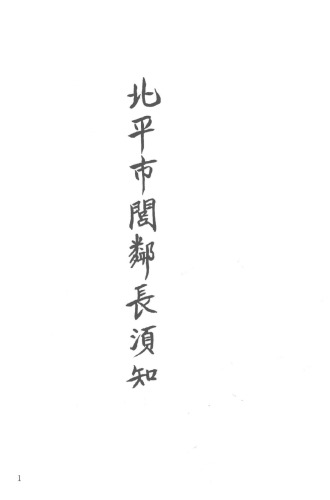 北平市閭鄰長須知
1